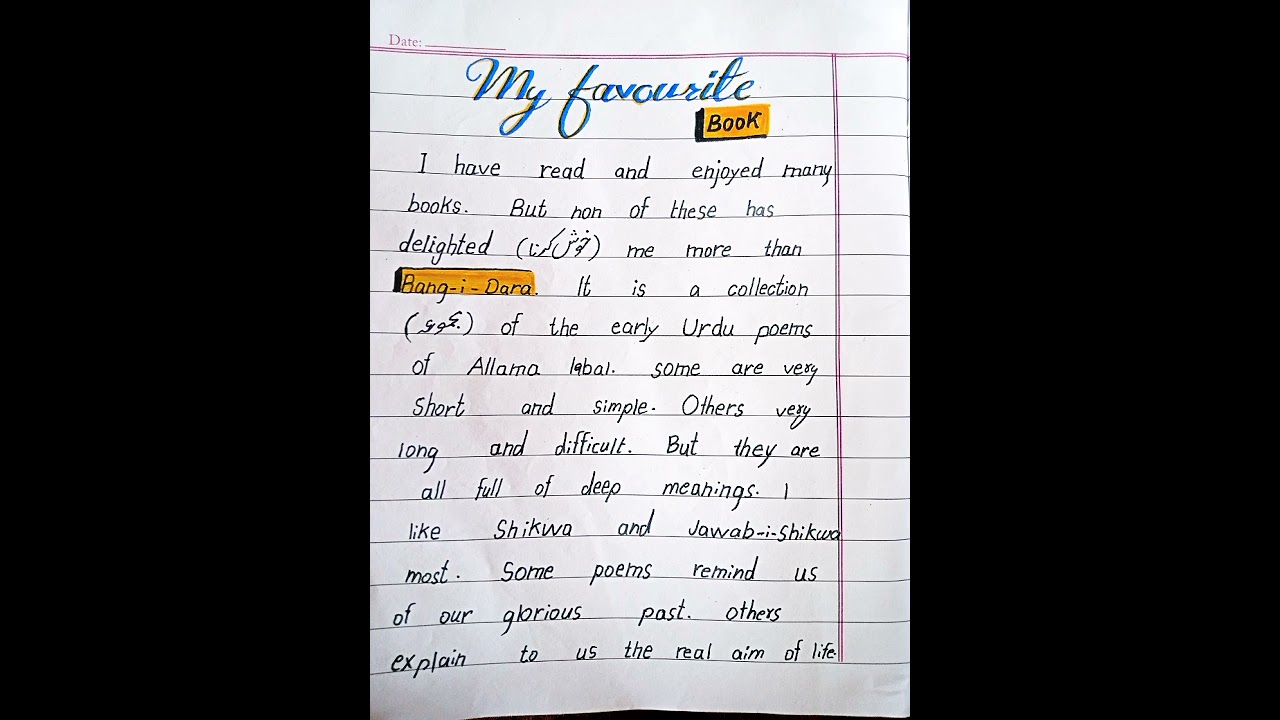 Date:
My favourite
BOOK
I have read and enjoyed many
books. But non of these has
delighted (خوش کرنا) me more than
Bang-i-Dara. It is a collection
of the early Urdu poems
of Allama Iqbal. some are very
short and simple. Others very
long and difficult. But they are
all full of deep meanings. I
like Shikwa and Jawab-i-Shikwa
most. Some poems remind us
of our glorious past. others
explain to us the real aim of life.